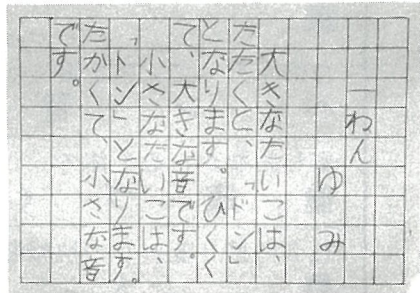 一わん
ゆみ
大きなたいこは、
たたくと、「ドン」
となります。ひくく
て、大きな音です。
小さなたいこは、
「トン」となります。
たかくて、小さな音
です。